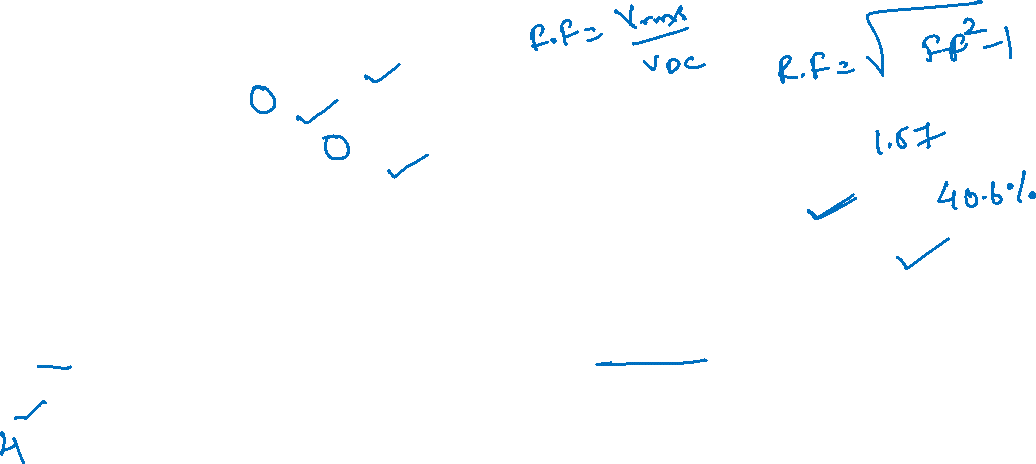 F.F = Vrms / VDC
R.F = √FF² - 1
0
0
1.57
40.6%
4